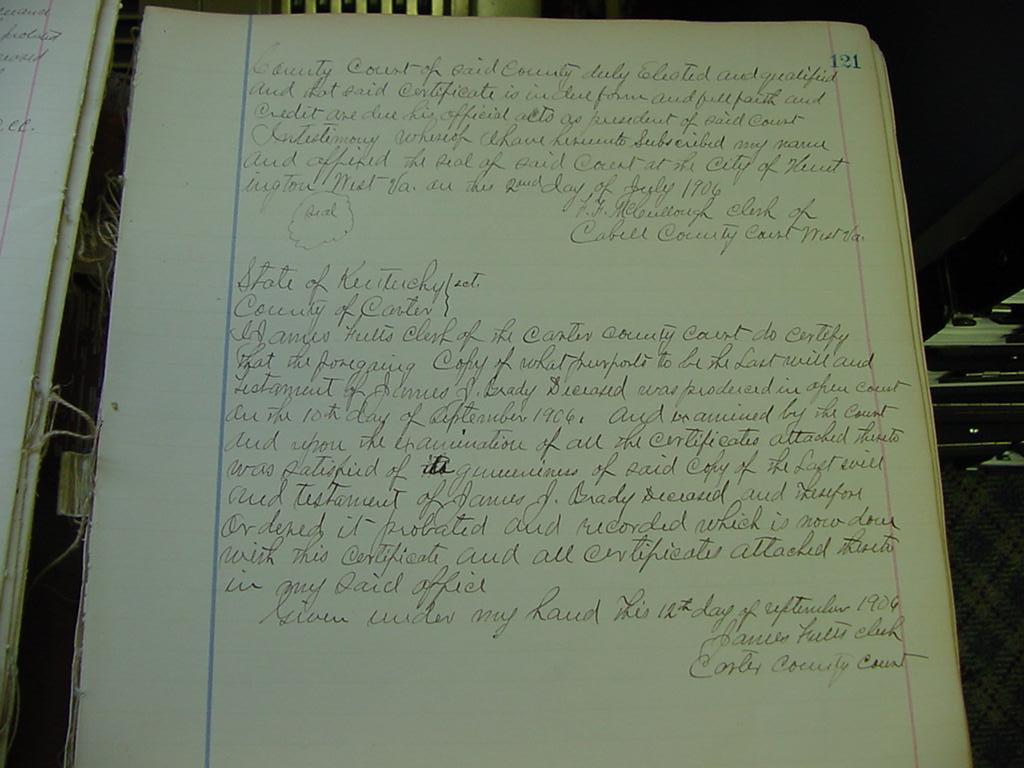 121
County Court of said County duly Elected and qualified
and that said certificate is in due form and full faith and
Credit are due his official acts as president of said Court
In testimony whereof I have hereunto Subscribed my name
and affixed the seal of said Court at the City of Hunt
ington West Va. on this 2nd day of July 1906
Seal
F. F. McCullough clerk of
Cabell County Court West Va.
State of Kentucky } sct.
County of Carter }
I James Fults clerk of the Carter county court do certify
that the foregoing Copy of what purports to be the Last will and
testament of James J. Brady Deceased was produced in open court
on the 10th day of September 1906. and examined by the Court
and upon the examination of all the certificates attached thereto
was satisfied of its genuineness of said Copy of the Last will
and testament of James J. Brady Deceased and therefore
Ordered it probated and recorded which is now done
with this certificate and all certificates attached thereto
in my said office
Given under my hand this 12th day of September 1906
James Fults clerk
Carter County Court